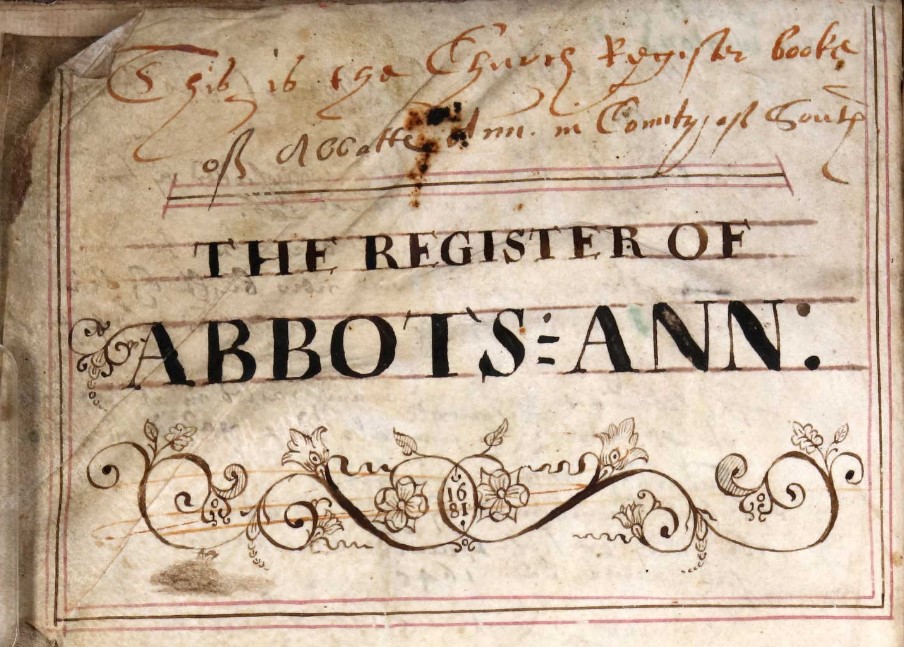 This is the Church Register booke
of Abbotts Ann. in Comity of South
THE REGISTER OF
ABBOTS:ANN:
16
81